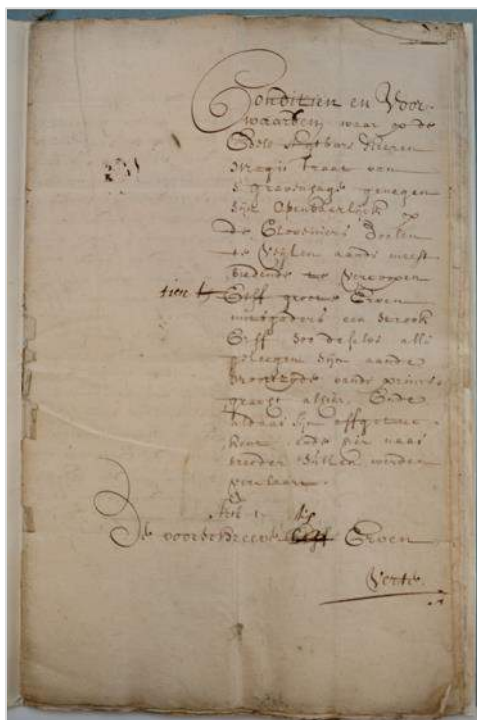 Conditien en Voor-
waarden, waar op de
Edele Agtbare Heeren
Magistraat van
s' Gravenhage genegen
sijn Openbaarlijck op
de Cloveniers Doelen
te Veijlen aande meest
biedende te Vercoopen
tien Elff groote Erven
mitsgaders een
Erff, soo deselve alle
geleegen sijn aande
Noortzijde vande prince
gracht alhier, Ende
aldaar sijn affgetee-
kent, ende hier naar
breeder sullen werden
verclaart.
Art. 1.
De voorschreeve Erven
Verte.